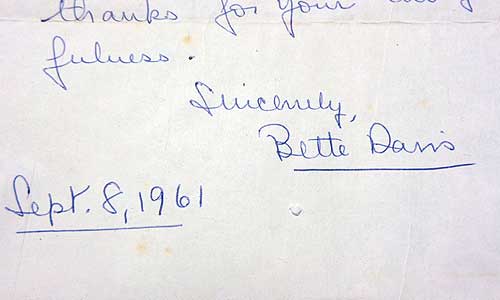 thanks for your
fulness.
Sincerely,
Bette Davis
Sept. 8, 1961